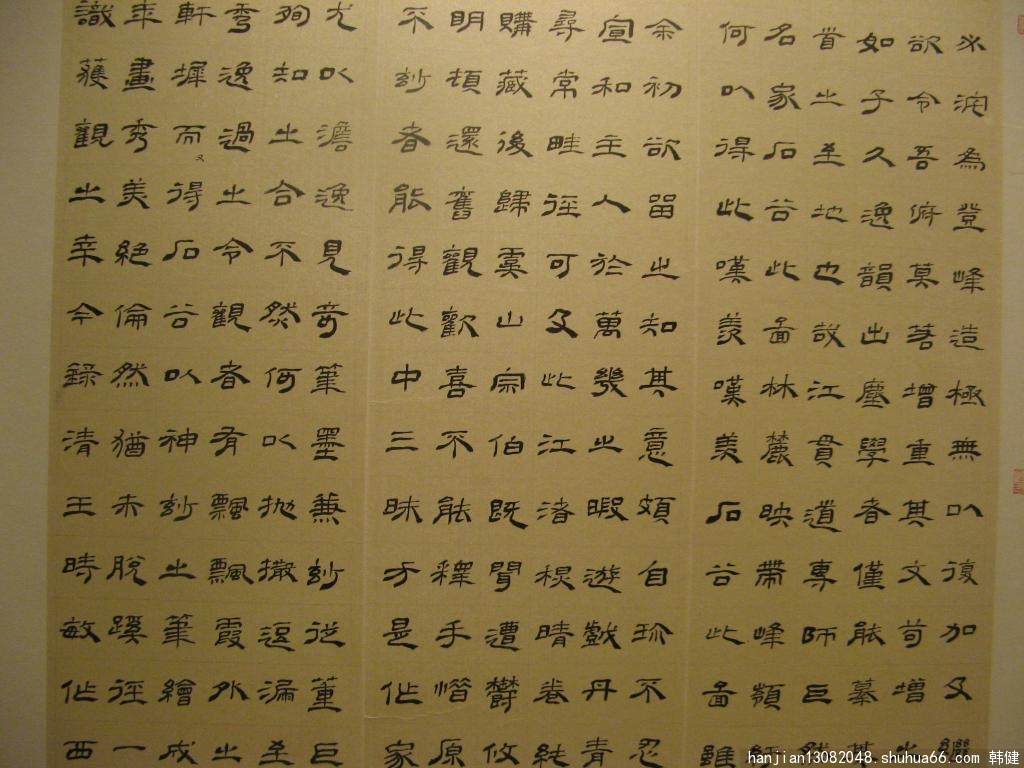 為登峰造極無以復加及繼
欲令吾俯莫著增重其文苟增之
如子久逸韻出塵學者僅能摹其
首之至地也故江貫道專師巨然
名家石谷此圖林麓映帶峰巔
何以得此嘆羨嘆美石谷此圖雖
余初欲留之知其意頗自珍不忍
宣和主人於萬幾之暇遊戲丹青
尋常畦徑可及此江渚晴卷純
購藏後歸虞山宗伯既聞遭鬱攸
明頓還舊觀歡喜不能釋手惜原
不妙者能得此中三昧方是作家
尤以澹逸見奇筆墨兼妙從董巨
徇知之合不然何以拋撒逗漏至
秀逸過之令觀者有飄飄霞外之
軒墀而得石谷以神妙之筆繪成
年畫秀美絕倫然猶未脫蹊徑一
識獲觀之幸今錄清王時敏作西
hanjian13082048.shuhua66.com 韩健